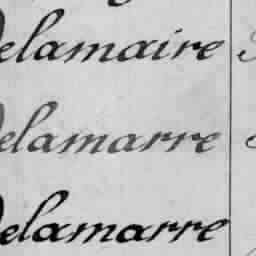 Delamaire
Delamarre
Delamarre